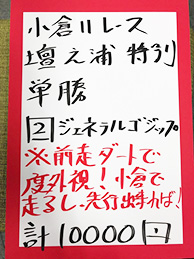 小倉11レース
壇之浦特別
単勝
2 ジェネラルゴジップ
※前走ダートで
度外視!小倉で
走るし、先行出来れば!
計10000円